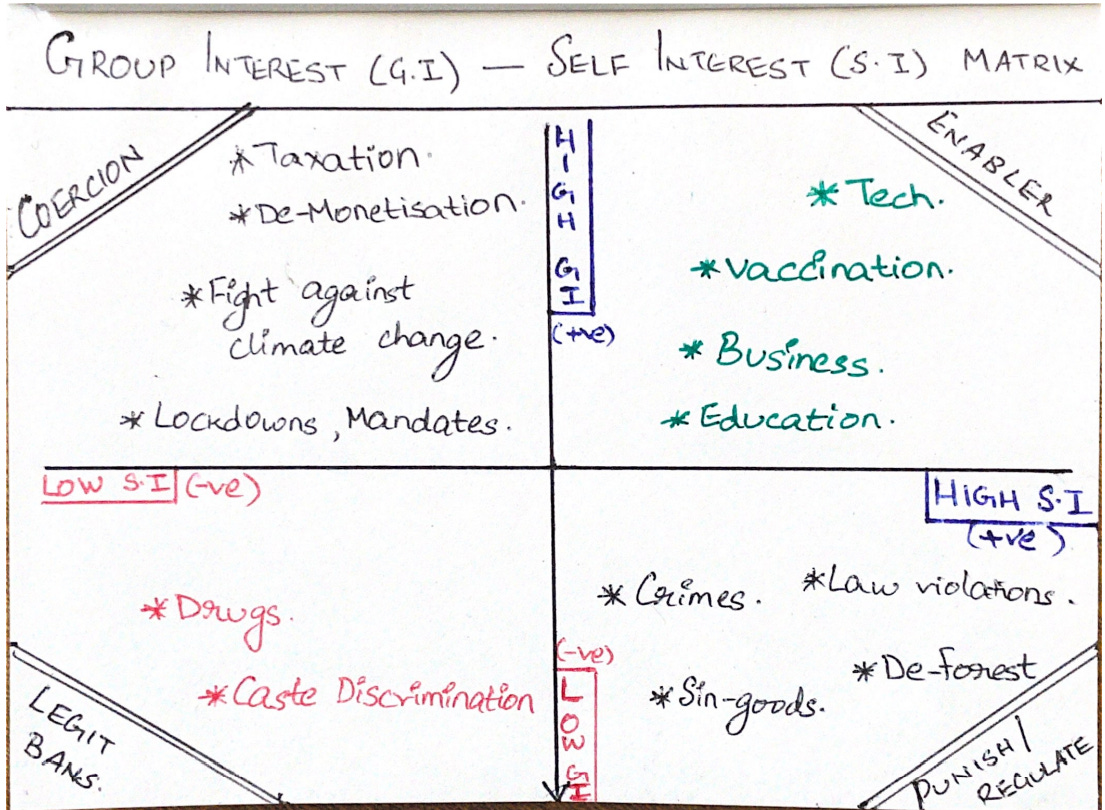 GROUP INTEREST (G.I) — SELF INTEREST (S.I) MATRIX
COERCION
* Taxation.
* De-Monetisation.
* Fight against
climate change.
* Lockdowns, Mandates.
HIGH GI
(+ve)
ENABLER
* Tech.
* Vaccination.
* Business.
* Education.
LOW S.I (-ve)
HIGH S.I
(+ve)
* Drugs.
* Caste Discrimination
LEGIT
BANS.
(-ve)
LOW GI
* Crimes.
* Law violations.
* De-forest
* Sin-goods.
PUNISH/
REGULATE